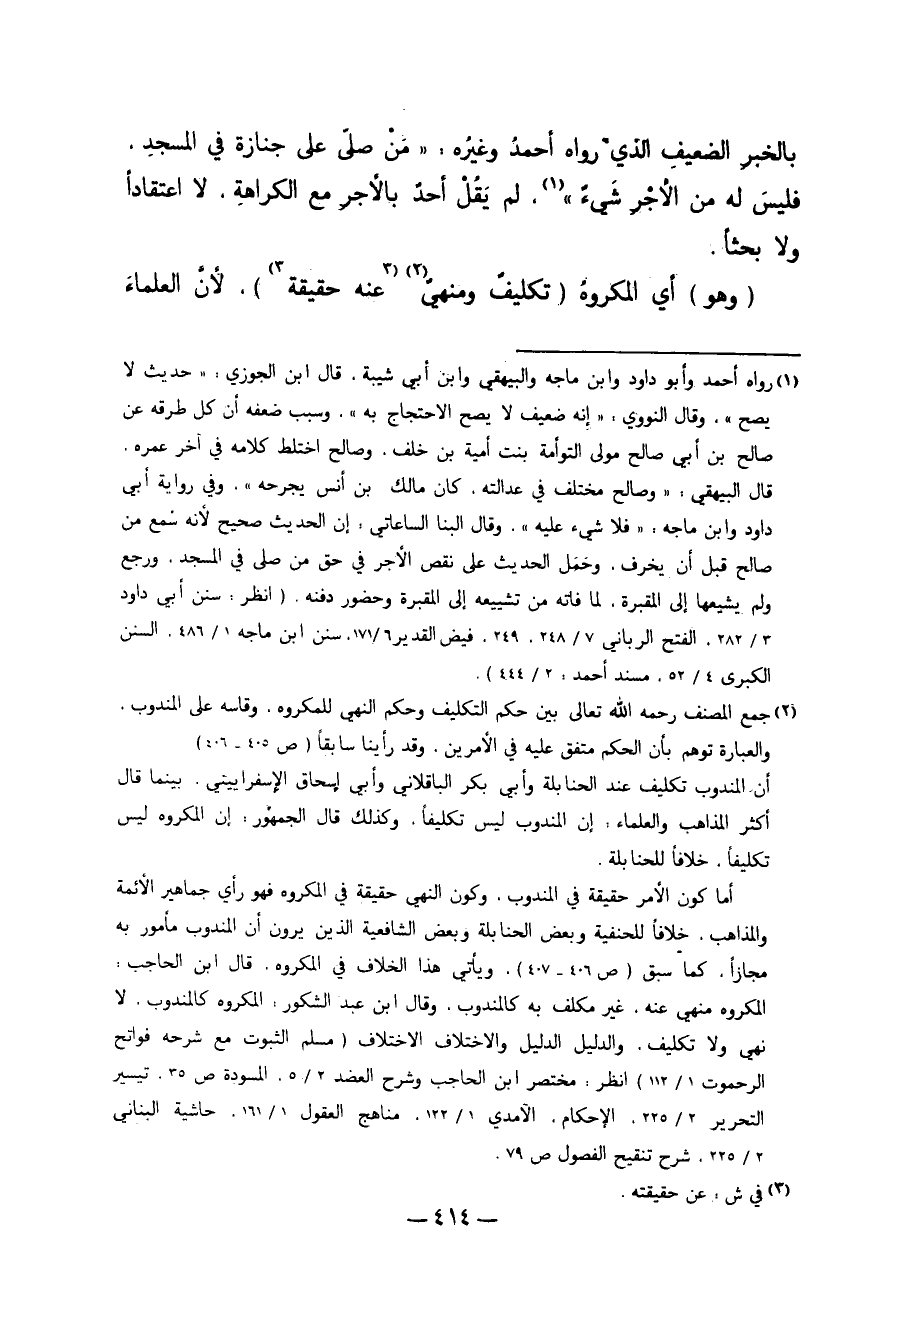 بالخبرِ الضعيفِ الذي رواه أحمدُ وغيرُه : « مَنْ صلّى على جنازة في المسجدِ ،
فليسَ له من الْأجْرِ شَيءٌ »(١) ، لم يَقُلْ أحدٌ بالأجرِ مع الكراهةِ ، لا اعتقاداً
ولا بحثاً .
( وهو ) أي المكروهُ ( تكليفٌ ومنهيٌّ(٢) (٣ عنه حقيقة٣) ) ، لأنَّ العلماءَ
(١) رواه أحمد وأبو داود وابن ماجه والبيهقي وابن أبي شيبة . قال ابن الجوزي : « حديث لا
يصح » ، وقال النووي : « إنه ضعيف لا يصح الاحتجاج به » ، وسبب ضعفه أن كل طرقه عن
صالح بن أبي صالح مولى التوأمة بنت أمية بن خلف ، وصالح اختلط كلامه في آخر عمره ،
قال البيهقي : « وصالح مختلف في عدالته ، كان مالك بن أنس يجرحه » ، وفي رواية أبي
داود وابن ماجه : « فلا شيء عليه » ، وقال البنا الساعاتي : إن الحديث صحيح لأنه سُمع من
صالح قبل أن يخرف ، وحَمَل الحديث على نقص الأجر في حق من صلى في المسجد ، ورجع
ولم يشيعها إلى المقبرة ، لما فاته من تشييعه إلى المقبرة وحضور دفنه . ( انظر : سنن أبي داود
٣ / ٢٨٢ ، الفتح الرباني ٧ / ٢٤٨ ، ٢٤٩ ، فيض القدير ٦ /١٧١، سنن ابن ماجه ١ / ٤٨٦ ، السنن
الكبرى ٤ / ٥٢ ، مسند أحمد : ٢ / ٤٤٤ ) .
(٢) جمع المصنف رحمه الله تعالى بين حكم التكليف وحكم النهي للمكروه ، وقاسه على المندوب ،
والعبارة توهم بأن الحكم متفق عليه في الأمرين ، وقد رأينا سابقاً ( ص ٤٠٥ - ٤٠٦ )
أن المندوب تكليف عند الحنابلة وأبي بكر الباقلاني وأبي إسحاق الإسفراييني ، بينما قال
أكثر المذاهب والعلماء : إن المندوب ليس تكليفاً ، وكذلك قال الجمهور : إن المكروه ليس
تكليفاً ، خلافاً للحنابلة .
أما كون الأمر حقيقة في المندوب ، وكون النهي حقيقة في المكروه فهو رأي جماهير الأئمة
والمذاهب ، خلافاً للحنفية وبعض الحنابلة وبعض الشافعية الذين يرون أن المندوب مأمور به
مجازاً ، كما سبق ( ص ٤٠٦ - ٤٠٧ ) ، ويأتي هذا الخلاف في المكروه ، قال ابن الحاجب :
المكروه منهي عنه ، غير مكلف به كالمندوب ، وقال ابن عبد الشكور : المكروه كالمندوب ، لا
نهي ولا تكليف ، والدليل الدليل والاختلاف الاختلاف ( مسلم الثبوت مع شرحه فواتح
الرحموت ١ / ١١٢ ) انظر : مختصر ابن الحاجب وشرح العضد ٢ / ٥ ، المسودة ص ٣٥ ، تيسير
التحرير ٢ / ٢٢٥ ، الإحكام ، الآمدي ١ / ١٢٢ ، مناهج العقول ١ / ١٦١ ، حاشية البناني
٢ / ٢٢٥ ، شرح تنقيح الفصول ص ٧٩ .
(٣) في ش : عن حقيقته .
— ٤١٤ —